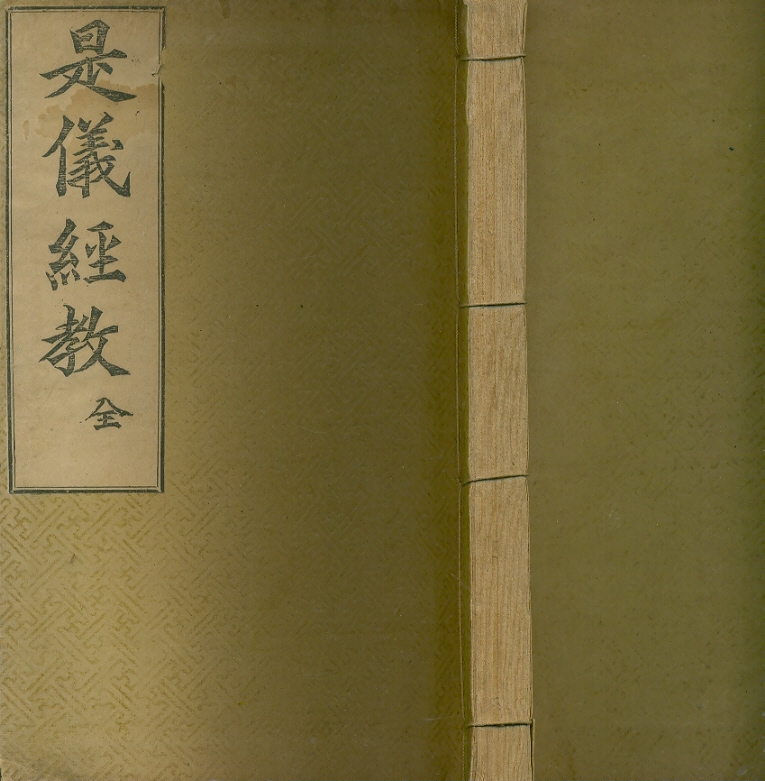 是儀經教全